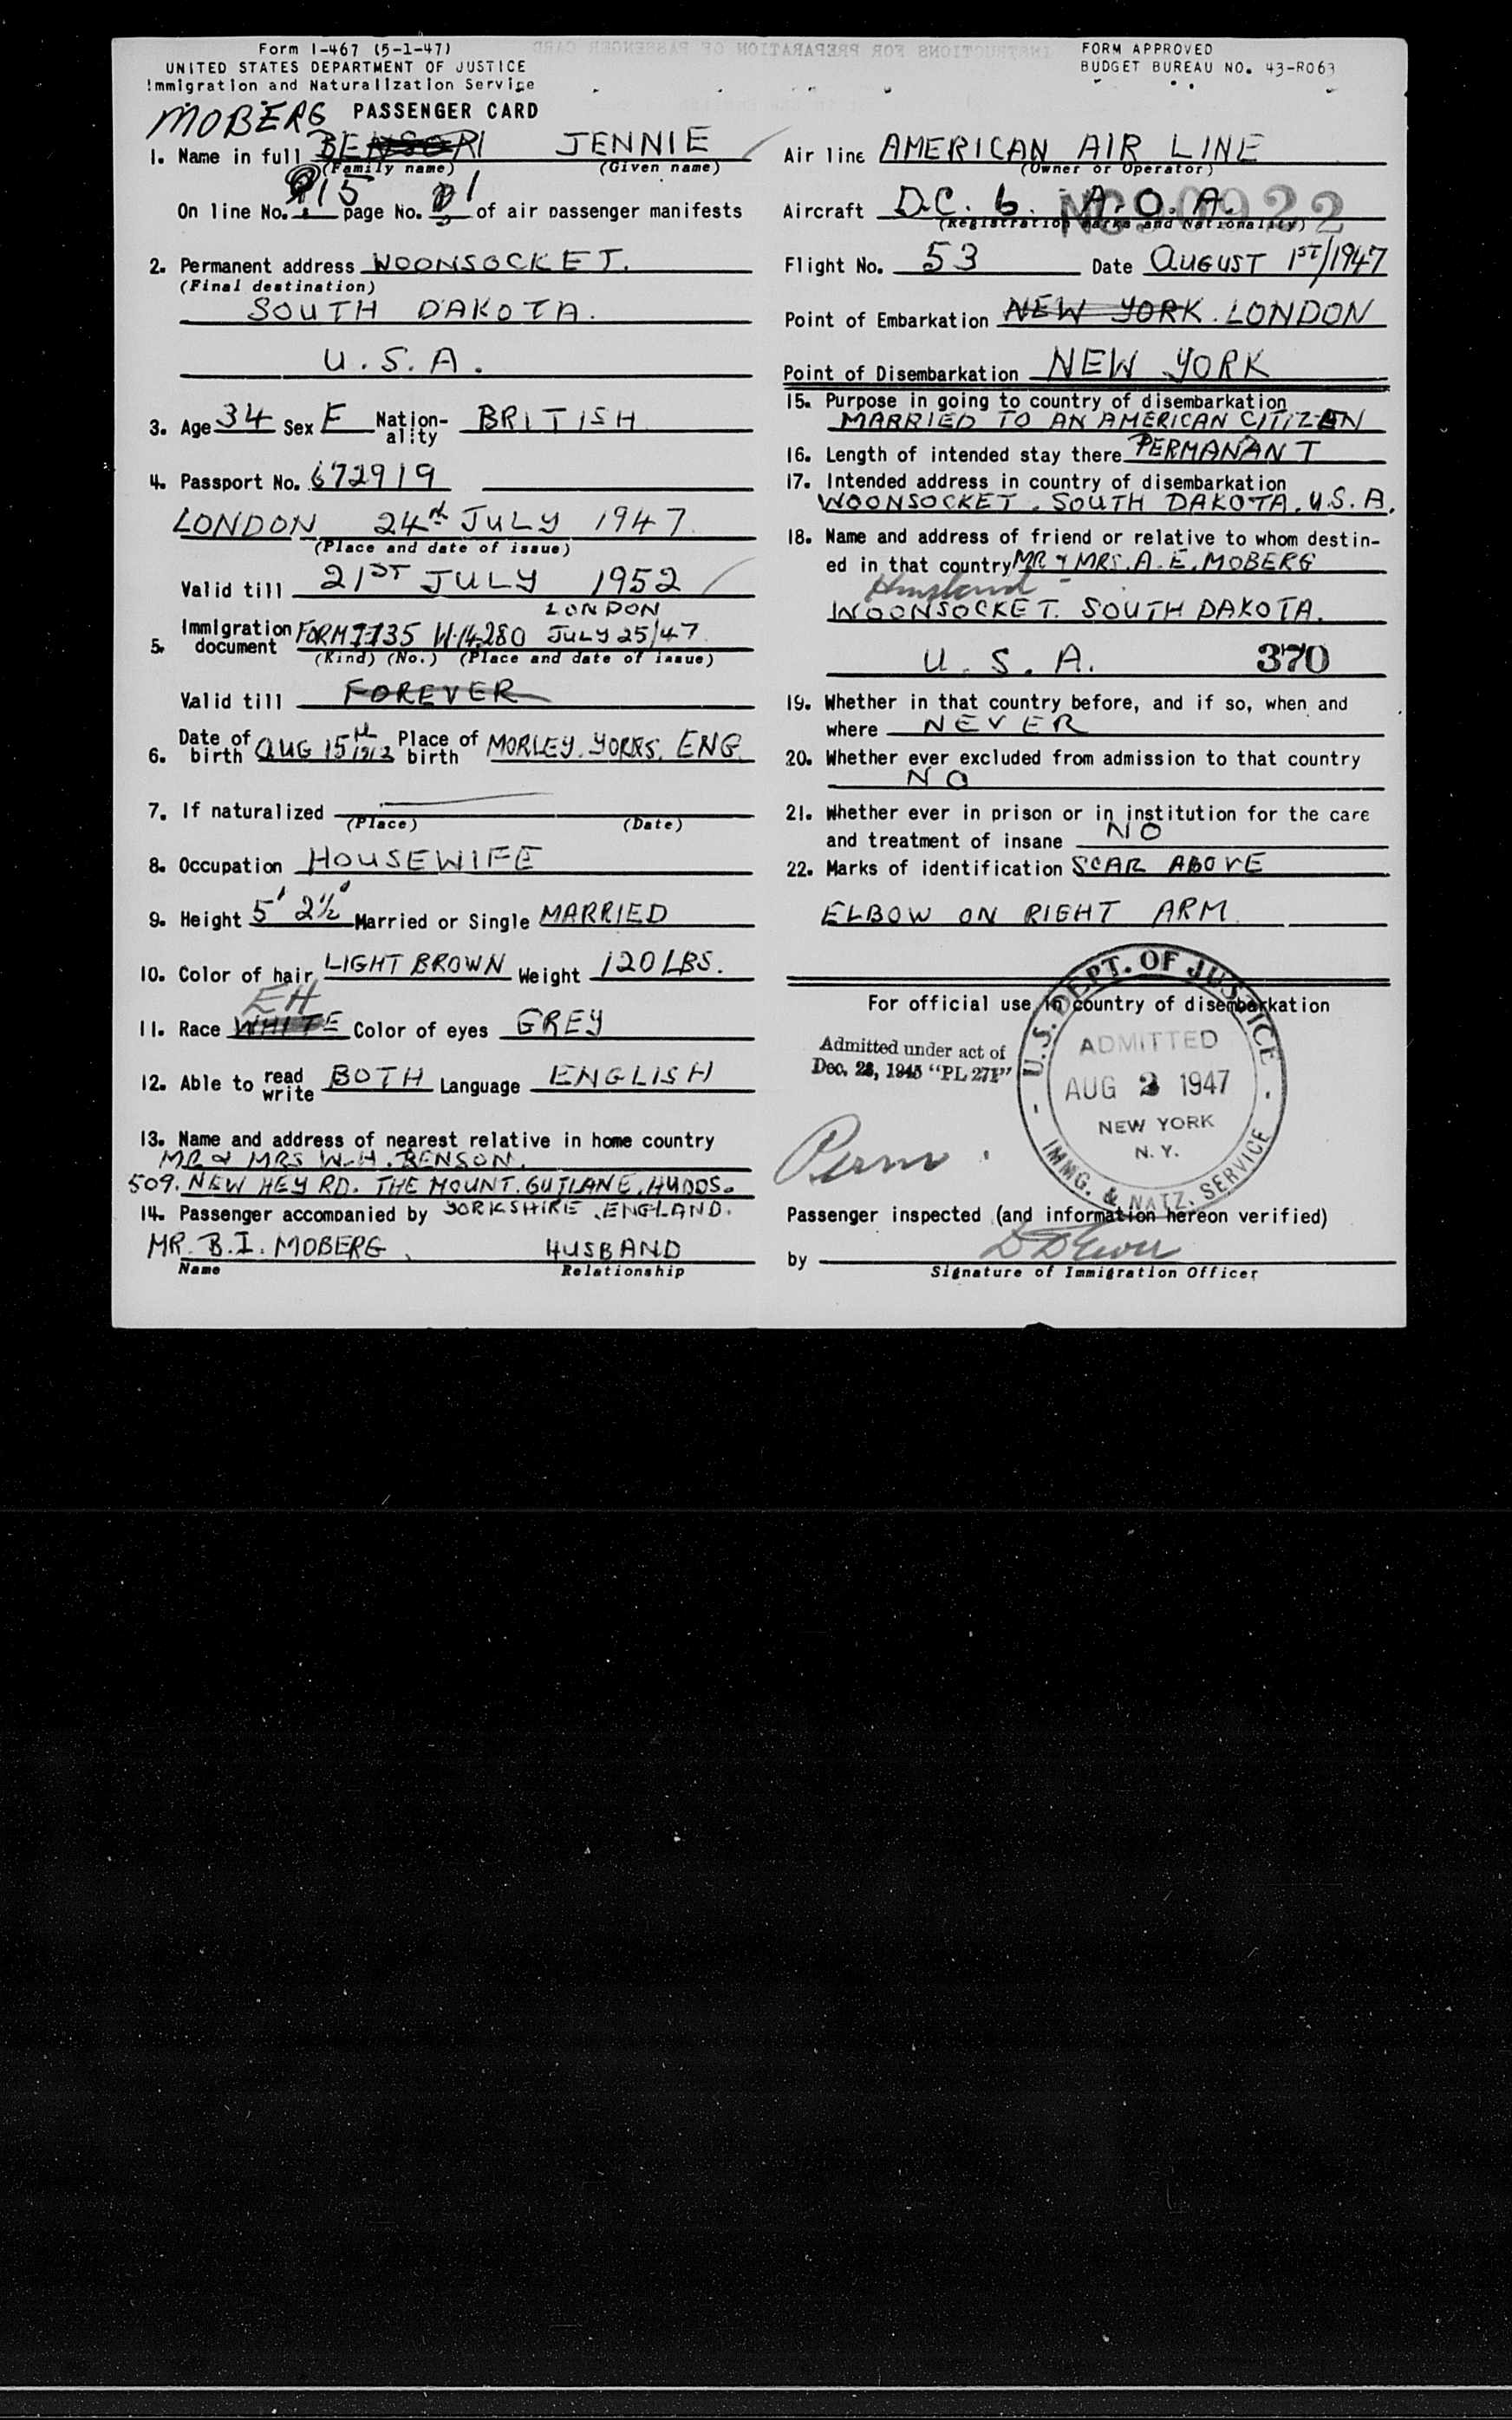 Form I-467 (5-1-47)
UNITED STATES DEPARTMENT OF JUSTICE
Immigration and Naturalization Service
PASSENGER CARD
MOBERG
1. Name in full JENNIE
(Family name) (Given name)
On line No. 15 page No. 1 of air passenger manifests
2. Permanent address WOONSOCKET.
(Final destination)
SOUTH DAKOTA.
U.S.A.
3. Age 34 Sex F Nation-ality BRITISH
4. Passport No. 672919
LONDON 24th JULY 1947
(Place and date of issue)
Valid till 21ST JULY 1952
LONDON
5. Immigration document FORM I-135 W.14280 JULY 25/47
(Kind) (No.) (Place and date of issue)
Valid till FOREVER
6. Date of birth AUG 15th 1912 Place of birth MORLEY. YORKS. ENG.
7. If naturalized
(Place) (Date)
8. Occupation HOUSEWIFE
9. Height 5' 2½" Married or Single MARRIED
10. Color of hair LIGHT BROWN Weight 120 LBS.
EH
11. Race WHITE Color of eyes GREY
12. Able to read write BOTH Language ENGLISH
13. Name and address of nearest relative in home country
MR & MRS W.H. BENSON.
509. NEW HEY RD. THE MOUNT. OUTLANE. HUDDS.
YORKSHIRE. ENGLAND.
14. Passenger accompanied by
MR. B.I. MOBERG. HUSBAND
Name Relationship
FORM APPROVED
BUDGET BUREAU NO. 43-R063
Air line AMERICAN AIR LINE
(Owner or Operator)
Aircraft D.C. 6. A.O.A. NC90922
(Registration marks and Nationality)
Flight No. 53 Date AUGUST 1ST/1947
Point of Embarkation NEW YORK. LONDON
Point of Disembarkation NEW YORK
15. Purpose in going to country of disembarkation
MARRIED TO AN AMERICAN CITIZEN
16. Length of intended stay there PERMANANT
17. Intended address in country of disembarkation
WOONSOCKET. SOUTH DAKOTA. U.S.A.
18. Name and address of friend or relative to whom destin-
ed in that country MR & MRS. A.E. MOBERG
Husband
WOONSOCKET. SOUTH DAKOTA.
U.S.A. 370
19. Whether in that country before, and if so, when and
where NEVER
20. Whether ever excluded from admission to that country
NO
21. Whether ever in prison or in institution for the care
and treatment of insane NO
22. Marks of identification SCAR ABOVE
ELBOW ON RIGHT ARM
For official use in country of disembarkation
Admitted under act of
Dec. 28, 1945 "PL 271"
U.S. DEPT. OF JUSTICE
ADMITTED
AUG 2 1947
NEW YORK
N.Y.
IMMG. & NATZ. SERVICE
Perm.
Passenger inspected (and information hereon verified)
by
Signature of Immigration Officer